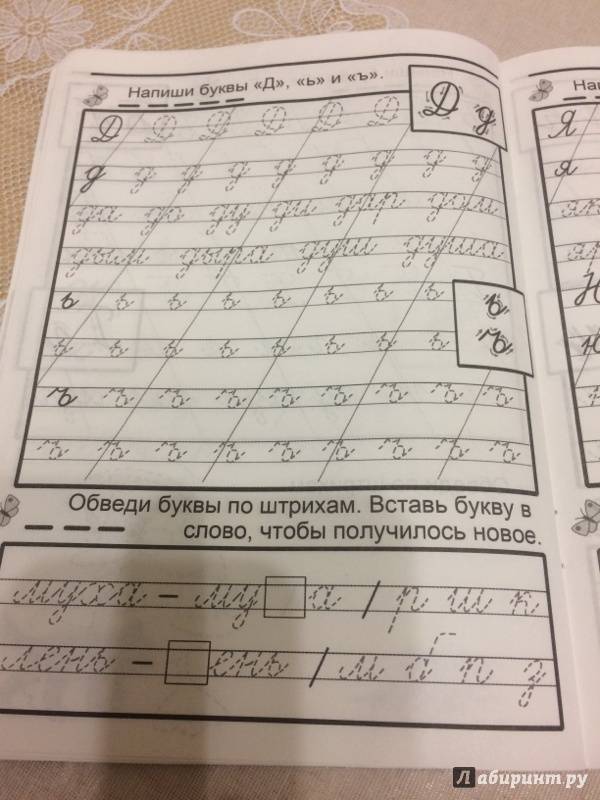 Напиши буквы «Д», «ь» и «ъ».
Д Д Д Д Д Д
Д д
д д д д д д д д
да до ду ди дар дом
дым дыра души душа
ь ь ь ь ь ь ь ь
ь
ъ
ь ь ь ь ь ь ь ь
ъ ъ ъ ъ ъ ъ ъ ъ ъ
ъ ъ ъ ъ ъ ъ ъ ъ ъ
Обведи буквы по штрихам. Вставь букву в
слово, чтобы получилось новое.
муха – му а / р ш к
лень – ень / м д п з
На
Я
я
Лабиринт.ру